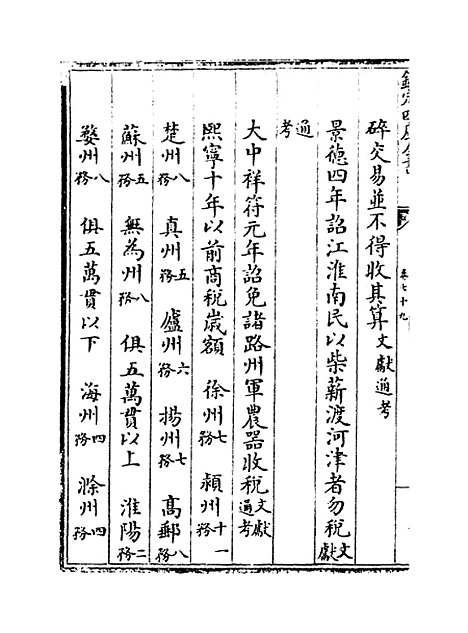 欽定四庫全書 卷七十九
碎交易並不得收其算文獻通考
景德四年詔江淮南民以柴薪渡河津者勿税文獻
通考
大中祥符元年詔免諸路州軍農器收税文獻通考
熙寧十年以前商税歲額 徐州七務 潁州十一務
楚州八務 真州五務 廬州六務 揚州七務 髙郵八務
蘇州五務 無為州八務 俱五萬貫以上 淮陽二務
婺州八務 俱五萬貫以下 海州四務 滁州四務